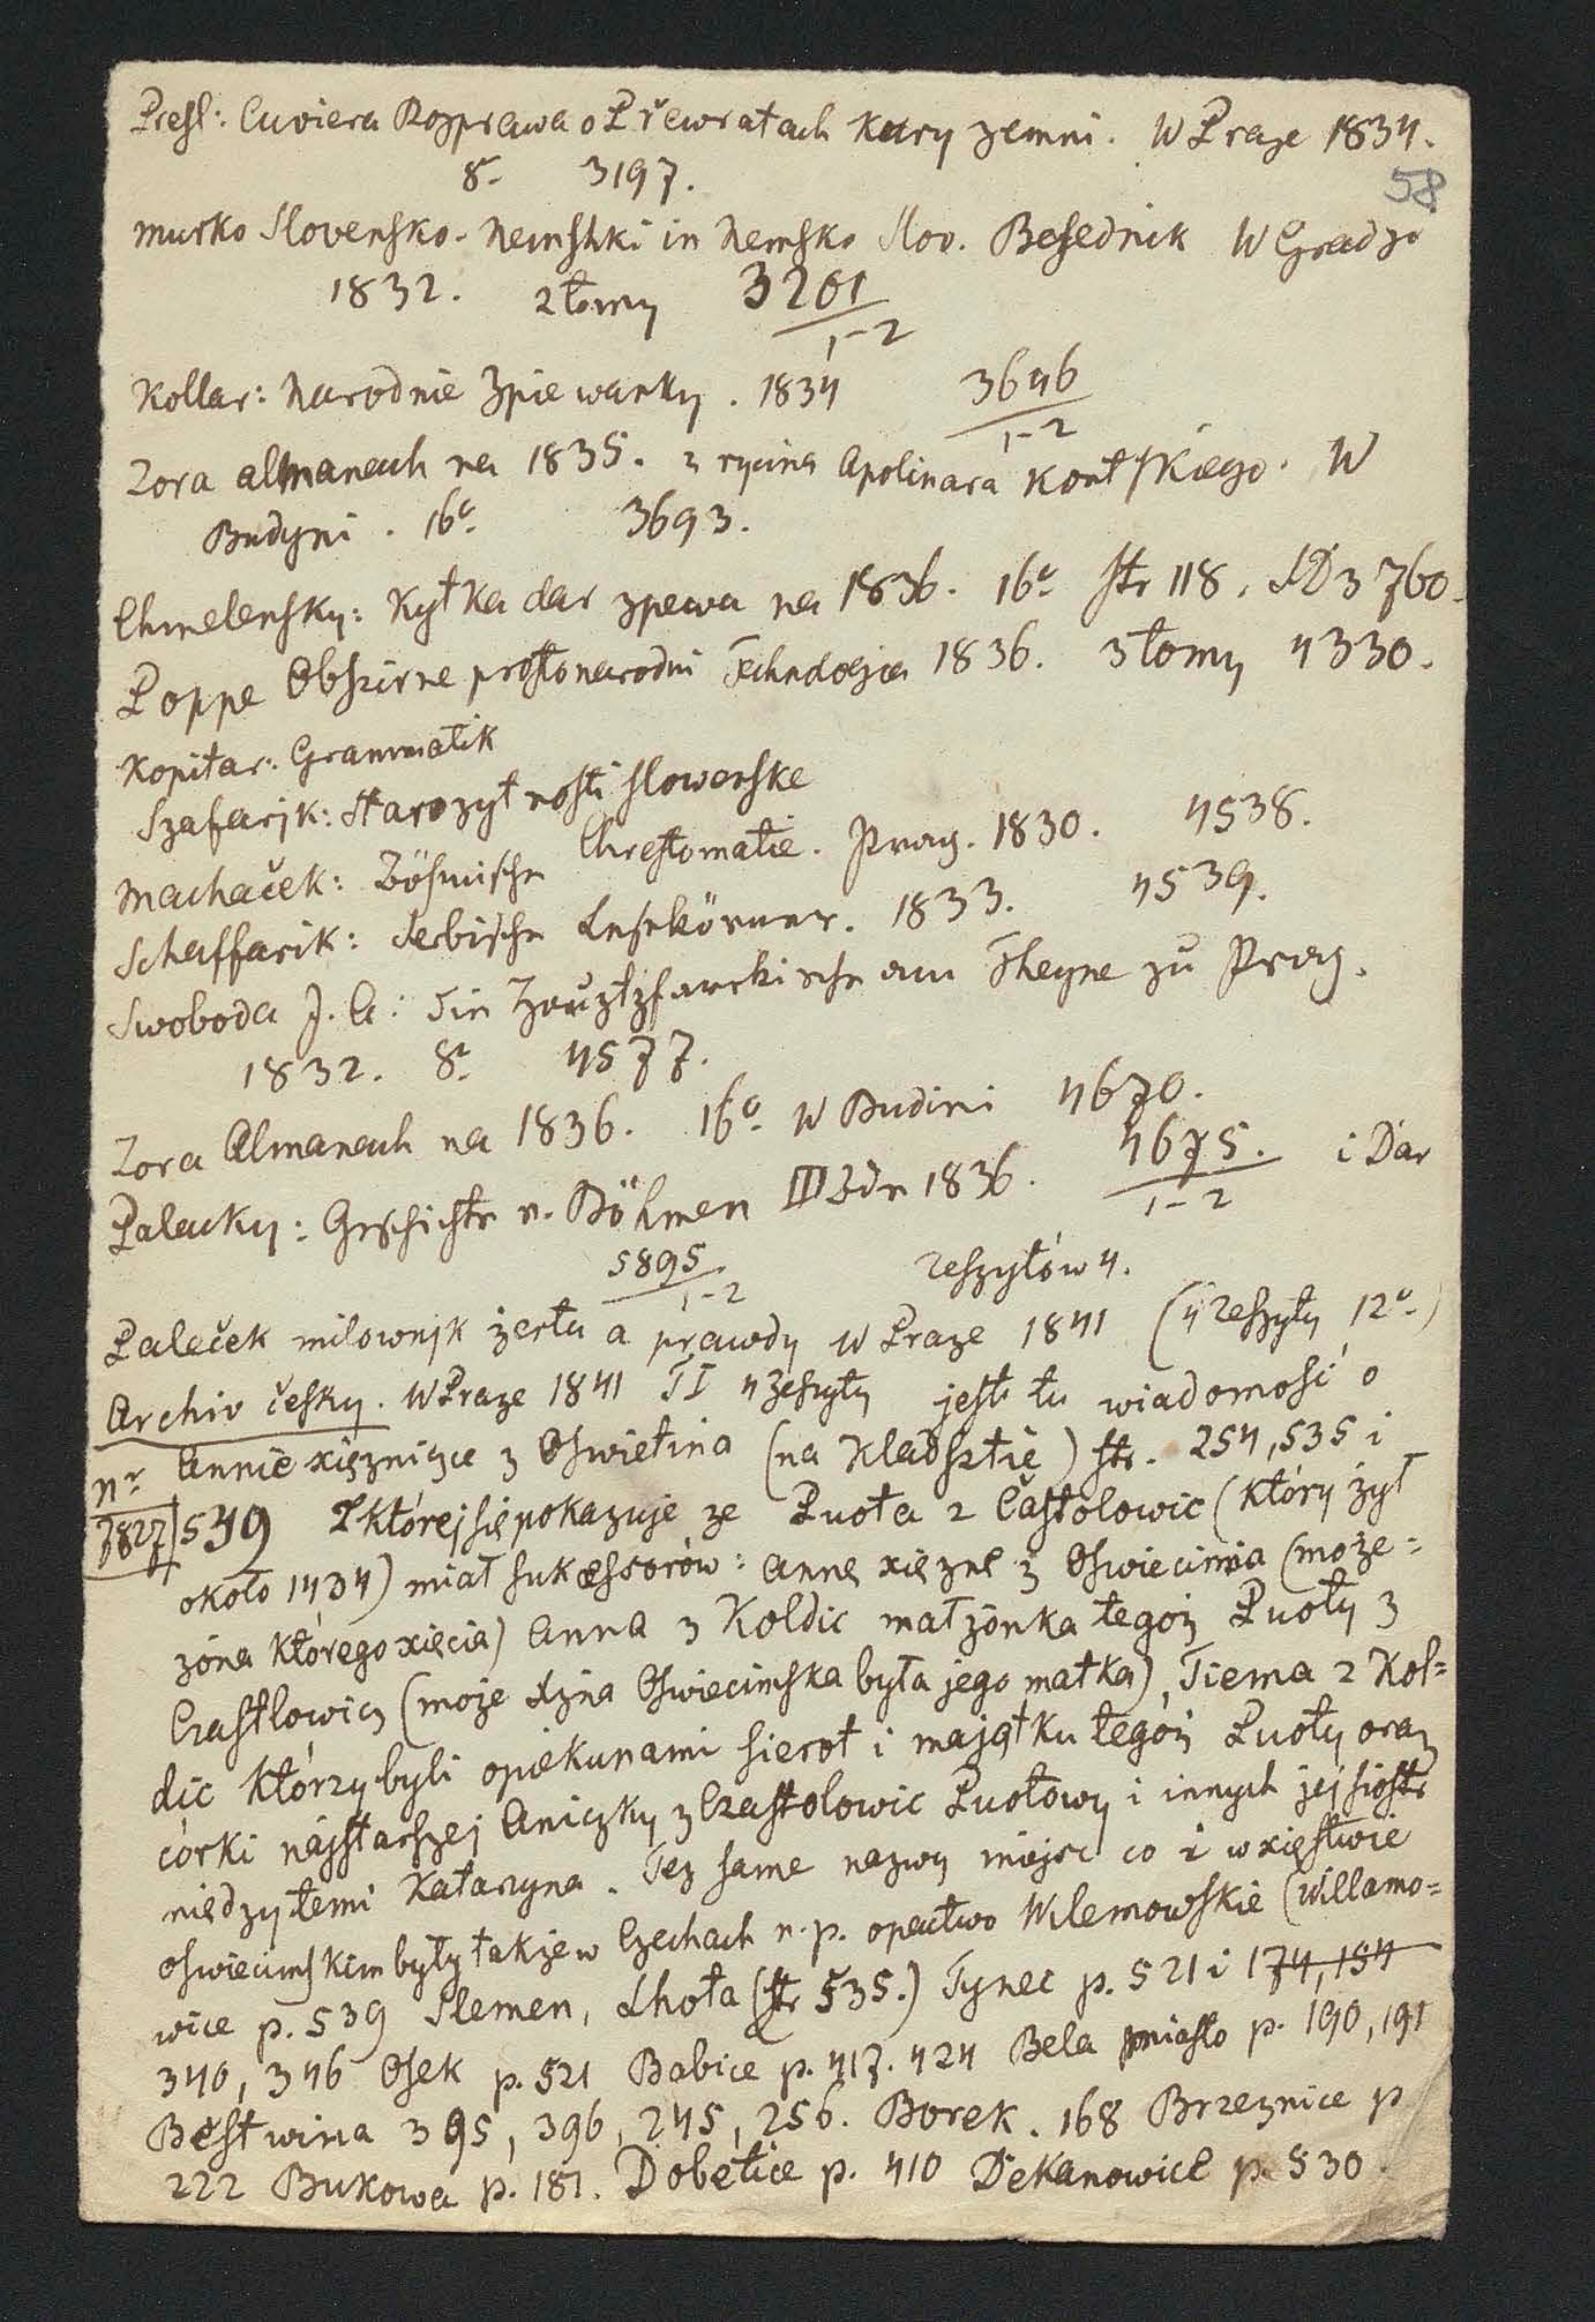 Presl: Cuviera Rozprawa o Přewratach Kury zemni. W Praze 1834.
8- 3197.
58
Murko Slovensko-Nemshki in Nemsko Slov. Besednik W Gradzo
1832. 2 tomy 3201
1-2
Kollar: Narodnie Zpiewanky. 1834 3646
1-2
Zora almanach na 1835. z rycina Apolinara Kontskiego. W
Budyni. 16o 3693.
Chmelensky: Kytka dar zpewa na 1836. 16o str 118. SD 3760.
Poppe Obszirne prostonarodni Technologia 1836. 3 tomy 4330.
Kopitar: Grammatik
Szafarjk: Starozytnosti slowenske
Machaček: Böhmische Chrestomatie. Prag. 1830. 4538.
Schaffarik: Serbische Lesekörner. 1833. 4539.
Swoboda J. A: Die Hauptpfarrkirche am Theyne zu Prag.
1832. 8o 4577.
Zora Almanach na 1836. 16o W Budini 4670.
Palacky: Geschichte v. Böhmen III Bde 1836. 4675. i Dar
1-2
5895 zeszytów 4.
1-2
Paleček milownjk żertu a prawdy W Praze 1841 (4 zeszyty 12o)
Archiv česky. W Praze 1841 TI 4 zeszyty jest tu wiadomość o
nr Annie xiężniczce z Oswietina (na Kladsztie) str. 254, 535 i
7827 539 Z której się pokazuje ze Puota z Častolowic (który żył
około 1434) miał sukcessorów: Annę xiężnę z Oswiecimia (może=
żona którego xięcia) Anna z Koldic małżonka tegoż Puoty z
Czastlowicz (może xżna Oswiecimska była jego matka), Tiema z Kol=
dic którzy byli opiekunami sierot i majątku tegoż Puoty oraz
córki najstarszej Aniczky z Czastolowic Puotowy i innych jej siostr
międzytemi Katarzyna. Też same nazwy miejsc co i w xięstwie
oswiecimskim były także w Czechach n.p. opactwo Wilemowskie (Willamo=
wice p. 539 Slemen, Lhota (str 535.) Tynec p. 521 i 174, 154
340, 346 Osek p. 521 Babice p. 417. 424 Bela miasto p. 190, 191
Bestwina 395, 396, 245, 256. Borek. 168 Brzeznice p
222 Bukowa p. 181. Dobetice p. 410 Dekanowice p. 530.